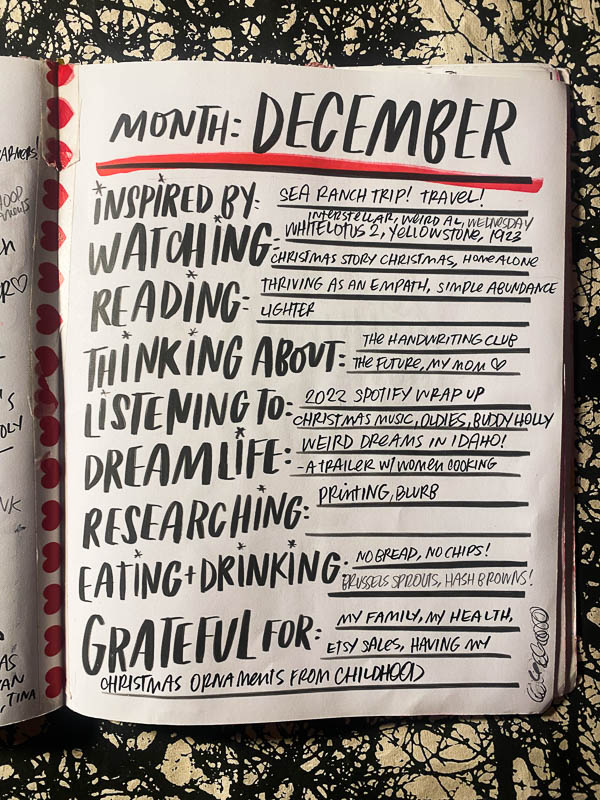 MONTH: DECEMBER
INSPIRED BY: SEA RANCH TRIP! TRAVEL!
INTERSTELLAR, WEIRD AL, WEDNESDAY
WATCHING: WHITELOTUS 2, YELLOWSTONE, 1923
CHRISTMAS STORY CHRISTMAS, HOME ALONE
READING: THRIVING AS AN EMPATH, SIMPLE ABUNDANCE
LIGHTER
THINKING ABOUT: THE HANDWRITING CLUB
THE FUTURE, MY MOM ♡
LISTENING TO: 2022 SPOTIFY WRAP UP
CHRISTMAS MUSIC, OLDIES, BUDDY HOLLY
DREAM LIFE: WEIRD DREAMS IN IDAHO!
- A TRAILER W/ WOMEN COOKING
RESEARCHING: PRINTING, BLURB
EATING + DRINKING: NO BREAD, NO CHIPS!
BRUSSELS SPROUTS, HASH BROWNS!
GRATEFUL FOR: MY FAMILY, MY HEALTH,
ETSY SALES, HAVING MY
CHRISTMAS ORNAMENTS FROM CHILDHOOD